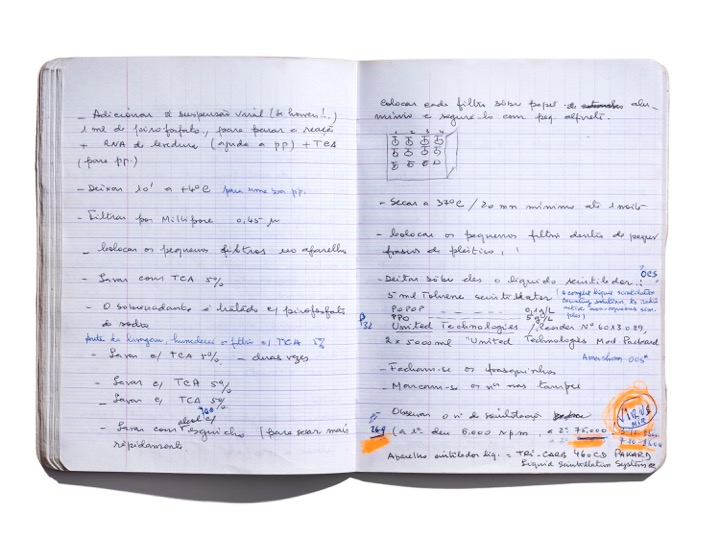 - Adicionar à suspensão viral (se houver!..)
1 ml de pirofosfato, para parar a reação
+ RNA de levedura (ajuda a pp) + TCA
(para pp.)
- Deixar 10' a +4°C para uma boa pp.
- Filtrar por Millipore 0,45 µ
- Colocar os pequenos filtros no aparelho
- Lavar com TCA 5%
- O sobrenadante é tratado c/ pirofosfato
de sódio
Antes da lavagem, humedecer o filtro c/ TCA 5%
- Lavar c/ TCA 5% - duas vezes
- Lavar c/ TCA 5%
- Lavar c/ TCA 5%
- Lavar com alcool 70° c/ esguicho (para secar mais
rápidamente
Colocar cada filtro sôbre papel de alu-
mínio e segurá-lo com peq. alfinete.
1 2 3 4
- Secar a 37°C / 20 mn mínimo até 1 noite
- Colocar os pequenos filtros dentro de pequenos
frascos de plástico
OCS
- Deitar sôbre eles o líquido scintilador:
5 ml Toluene scintillator
POPOP 0,1 g/L
PPO 5 g/L
P32
United Technologies / Reader Nº 6013029,
2 x 5000 ml "United Technologies Mod. Packard
Amersham OCS"
- Fecham-se os frasquinhos
- Marcam-se os nos nas tampas
Observar o nº de scintilação
(a 1ª deu 6.000 rpm, a 2ª 75.000
VIRUS
Aparelho cintilador liq. = TRI-CARB 460CD PAKARD
Liquid Scintillation System